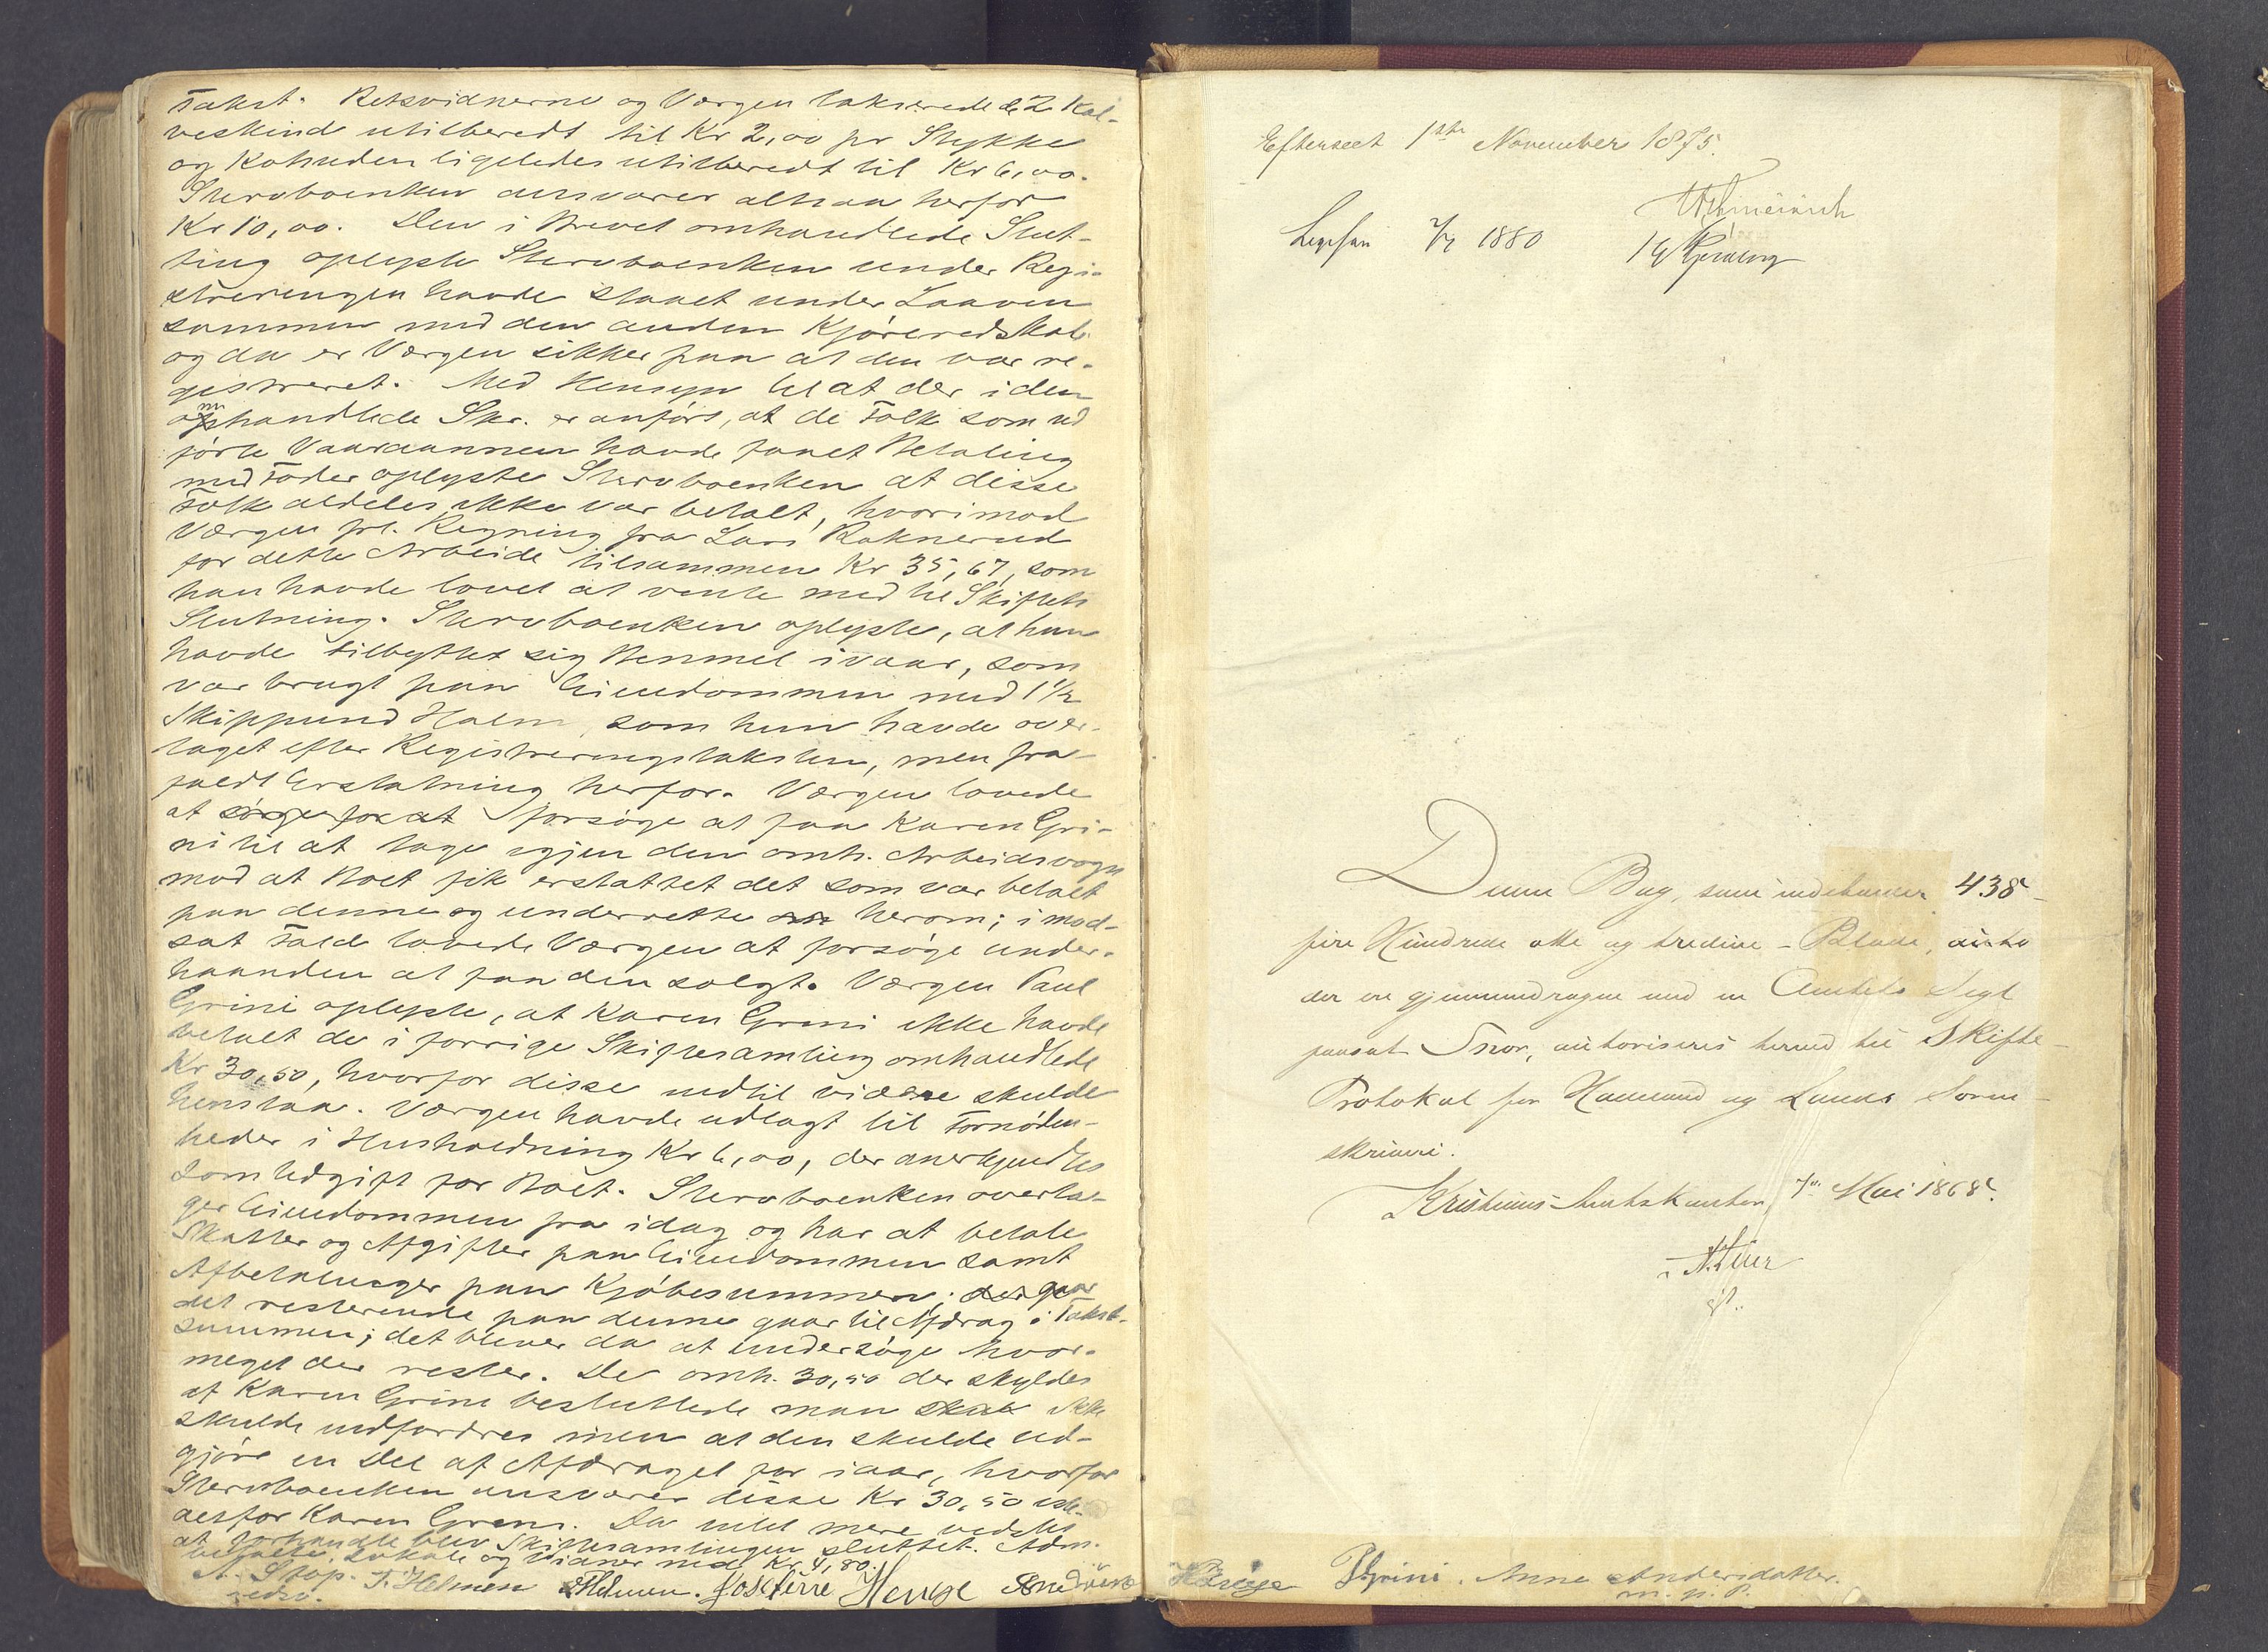 Takst. Retsvidnerne og Værgen takserede de 2 Kal-
veskind utilberedt til Kr 2,00 pr Stykke
og Kohuden ligeledes utilberedt til Kr 6,00.
Stervboenken ansvarer altsaa herfor
Kr 10,00. Den i Brevet omhandlede Slut-
ting oplyste Stervboenken under Regi-
streringen havde staaet under Laaven
sammen med den anden Kjøreredskab
og da er Værgen sikker paa at den var re-
gistreret. Med Hensyn til at der i den
omhandlede Skr. er anført, at de Folk som ud
førte Vaaraannen havde faaet Betaling
med Foder oplyste Stervboenken at disse
Folk aldeles ikke var betalt, hvorimod
Værgen frl. Regning fra Lars Raknerud
for dette Arbeide tilsammen Kr 35,67, som
han havde lovet at vente med til Skiftets
Slutning. Stervboenken oplyste, at hun
havde tilbyttet sig Bemmel i vaar, som
var brugt paa Eiendommen med 1 1/2
Skippund Halm, som hun havde over-
taget efter Registreringstaksten, men fra-
faldt Erstatning herfor. Værgen lovede
at sørge for at forsøge at faa Karen Gri-
ni til at tage igjen den omh. Arbeidsvogn
mod at Boet fik erstattet det som var betalt
paa denne og underrette herom; i mod-
sat Fald lovede Værgen at forsøge under-
haanden at faa den solgt. Værgen Paul
Grini oplyste, at Karen Grini ikke havde
betalt de i forrige Skiftesamling omhandlede
Kr 30,50, hvorfor disse indtil videre skulde
henstaa. Værgen havde udlagt til Fornøden-
heder i Husholdning Kr 6,00, der anerkjendtes
som Udgift for Boet. Stervboenken overta-
ger Eiendommen fra idag og har at betale
Skatter og Afgifter paa Eiendommen samt
Afbetalinger paa Kjøbesummen; der gaar
det resterende paa denne gaar til Afdrag i Takst-
summen; det bliver da at undersøge hvor-
meget der rester. De omh. 30,50 der skyldes
af Karen Grini besluttede man skal ikke
skulde indfordres men at den skulde ud-
gjøre en Del af Afdraget for iaar, hvorfor
Stervboenken ansvarer disse Kr 30,50 iste-
detfor Karen Grini. Da intet mere vidstes
at forhandle blev Skiftesamlingen sluttet. Adm.
betalte Lokale og Vidner med Kr 4,80.
A. Stap. T. Helmen
Efterseet 1ste November 1875.
1880
Denne Bog, som indeholder 438 -
fire Hundrede otte og tredive - Blade, alt
der ere gjennemdragne med en Amtets Segl
paasat Snor, autoriseres herved til Skifte-
Protokol for Hadeland og Lands Soren-
skriveri.
Kristians Amtskontor, 7de Mai 1868.
PGrini. Anne Andersdatter.
m. p. P.